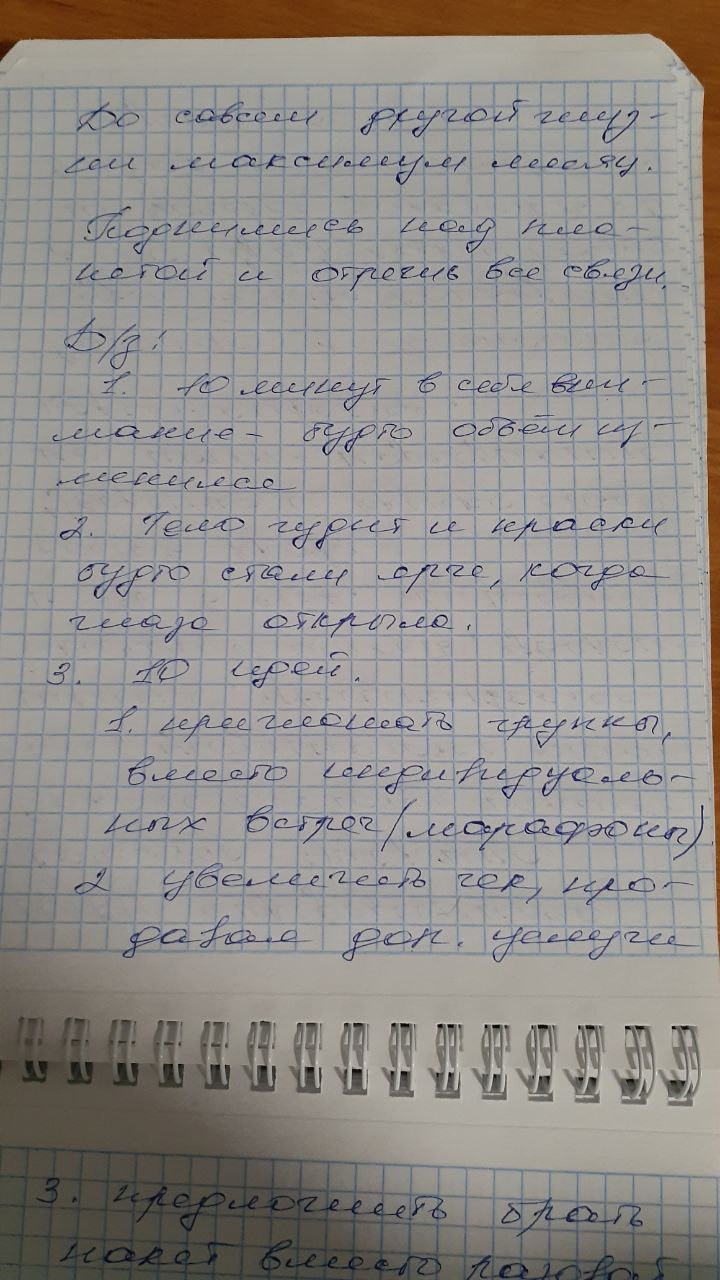 До совсем другой глуз-
ки максимум месяц.
Поднимись над пла-
нетой и отрежь все связи.
Д/з:
1. 10 минут в себя вни-
мание - будто объём из-
менился
2. Тело гудит и краски
будто стали ярче, когда
глаза открыла.
3. 10 идей.
1. приглашать группы,
вместо индивидуаль-
ных встреч (марафоны)
2 увеличить чек, про-
давая доп. услуги
3. предложить брать
пакет вместо разовой